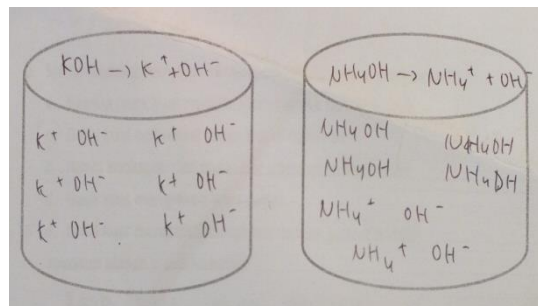 KOH → K⁺ + OH⁻
K⁺ OH⁻ K⁺ OH⁻
K⁺ OH⁻ K⁺ OH⁻
K⁺ OH⁻ K⁺ OH⁻
NH₄OH → NH₄⁺ + OH⁻
NH₄OH NH₄OH
NH₄OH NH₄OH
NH₄⁺ OH⁻
NH₄⁺ OH⁻